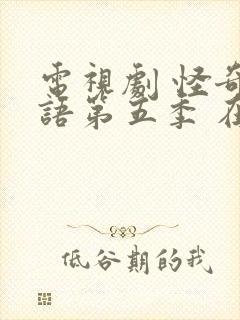 電視劇 怪奇
語第五季 在
低谷期的我